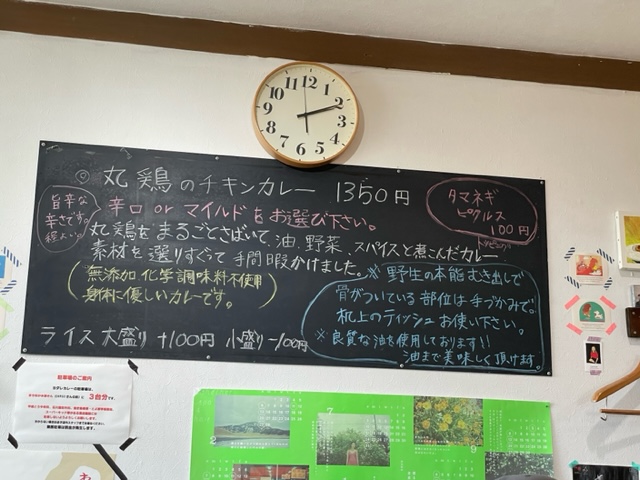 12
1
2
3
4
5
6
7
8
9
10
11
◎ 丸鶏のチキンカレー 1350円
旨辛な
辛さです。
辛口 or マイルドをお選び下さい。
丸鶏をまるごとさばいて、油、野菜、スパイスと煮こんだカレー
素材を選りすぐって手間暇かけました。
(無添加 化学調味料不使用
身体に優しいカレーです。)
ライス大盛り +100円 小盛り -100円
タマネギ
ピクルス
100円
※野生の本能むき出しで
骨がついている部位は手づかみで。
机上のティッシュお使い下さい。
※良質な油を使用しております!!
油まで美味しく頂けます。
駐車場のご案内
3台分です。
7